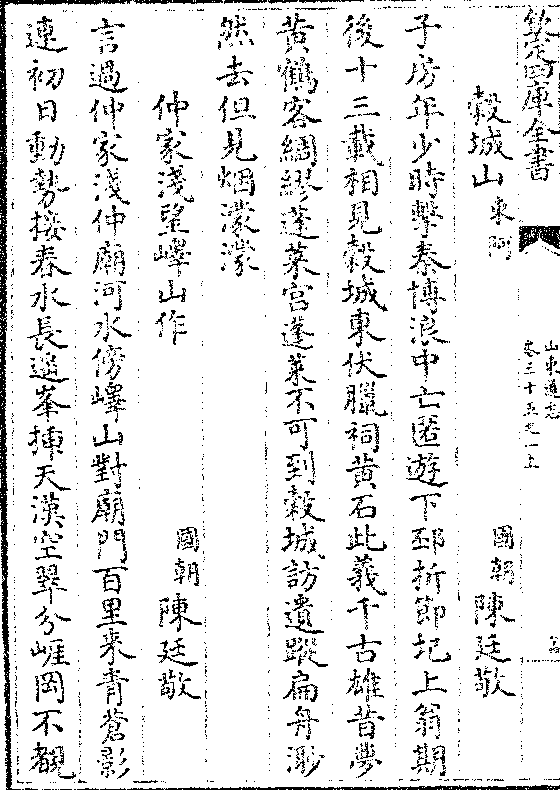 欽定四庫全書
山東通志
卷三十五之一上
穀城山 東阿 國朝陳廷敬
子房年少時擊秦博浪中亡匿遊下邳折節圯上翁期
後十三載相見穀城東伏臘祠黃石此義千古雄昔夢
黃鶴客綢繆蓬萊宮蓬萊不可到穀城訪遺蹤扁舟渺
然去但見烟濛濛
仲家淺望嶧山作 國朝陳廷敬
言過仲家淺仲廟河水傍嶧山對廟門百里来青蒼影
連初日動勢接春水長遥峯揷天漢空翠分崕岡不覩